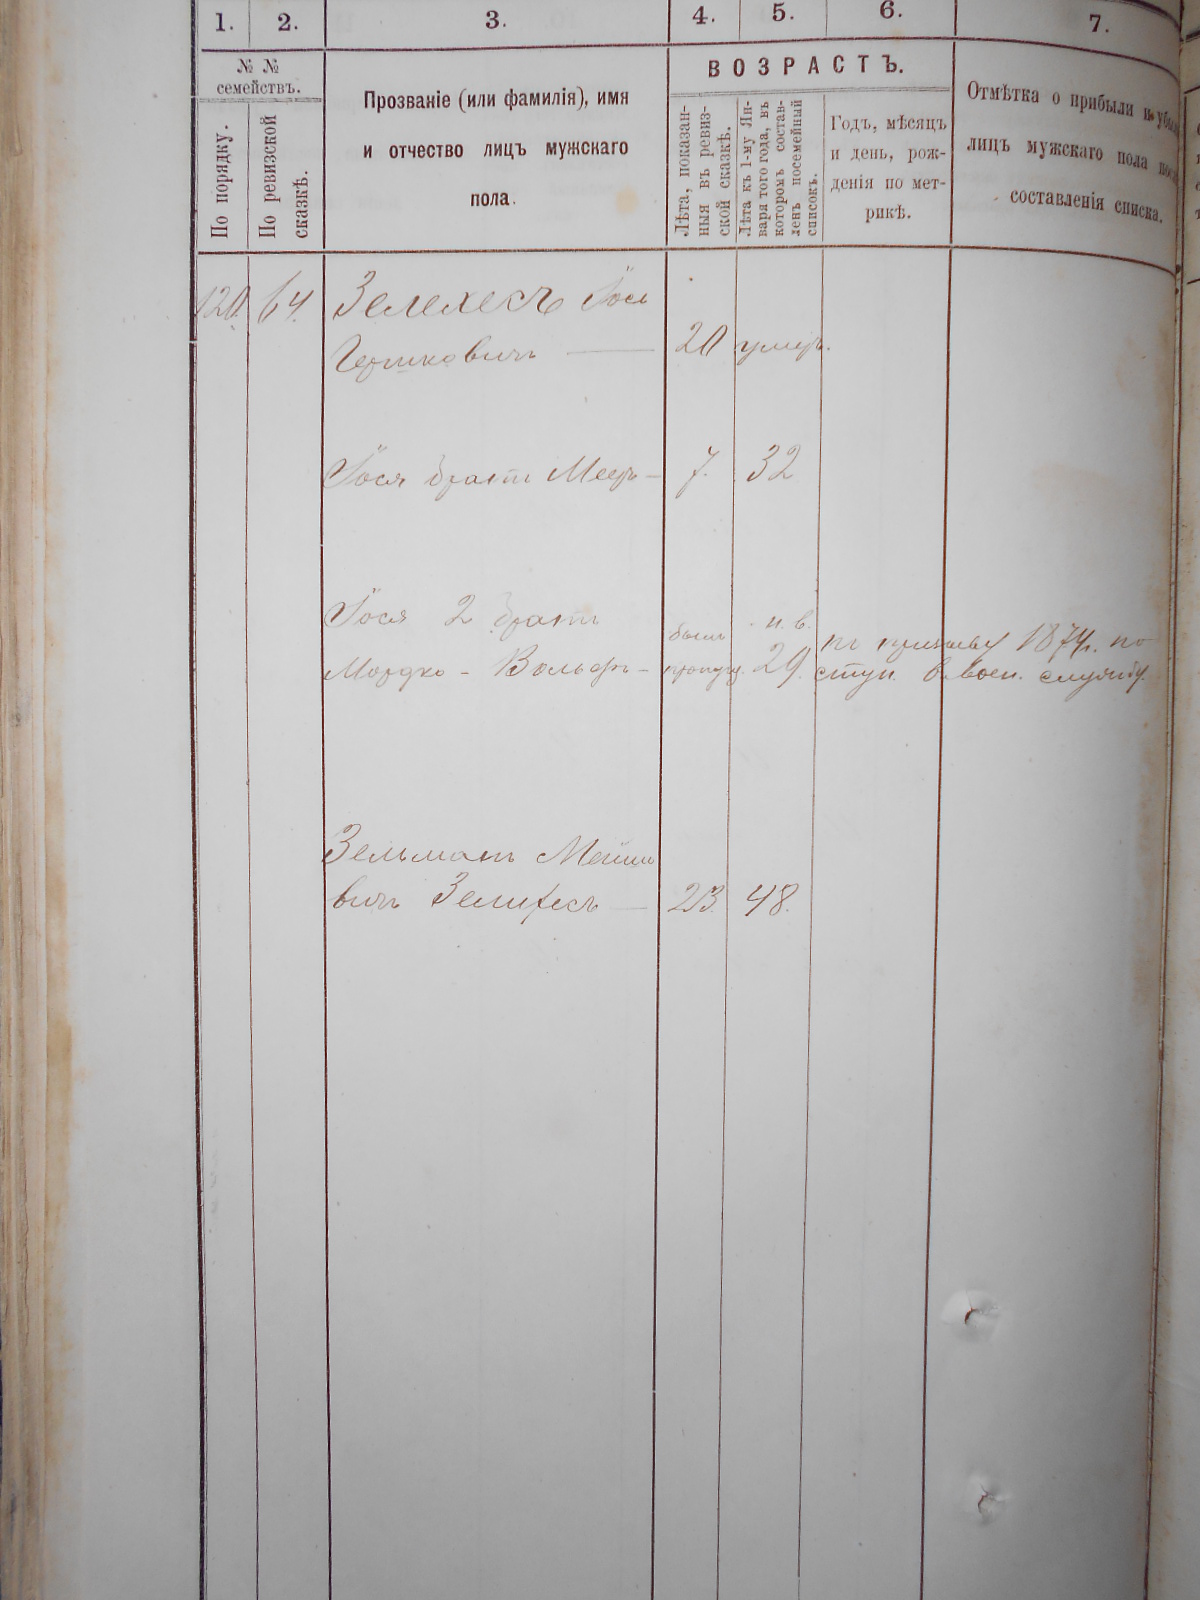 1. 2. 3. 4. 5. 6. 7.
№ №
семействъ.
По порядку.
По ревизской
сказкѣ.
Прозваніе (или фамилія), имя
и отчество лицъ мужскаго
пола.
ВОЗРАСТЪ.
Лѣта, показан-
ныя въ ревиз-
ской сказкѣ.
Лѣта къ 1-му Ян-
варя того года, въ
которомъ состав-
ленъ посемейный
списокъ.
Годъ, мѣсяцъ
и день, рож-
денія по мет-
рикѣ.
Отмѣтка о прибыли и
лицъ мужскаго пола
составленія списка.
120. 64. Зелехесъ Іось
Гершковичъ — 20 умеръ.
Іося братъ Мееръ — 7. 32
Іося 2 братъ
Мордко - Вольфъ —
былъ
пропущ.
н. в.
29.
по призыву 1874г. по
ступ. в воен. службу.
Зельманъ Мейшо
вичъ Зелихесъ — 23. 48.